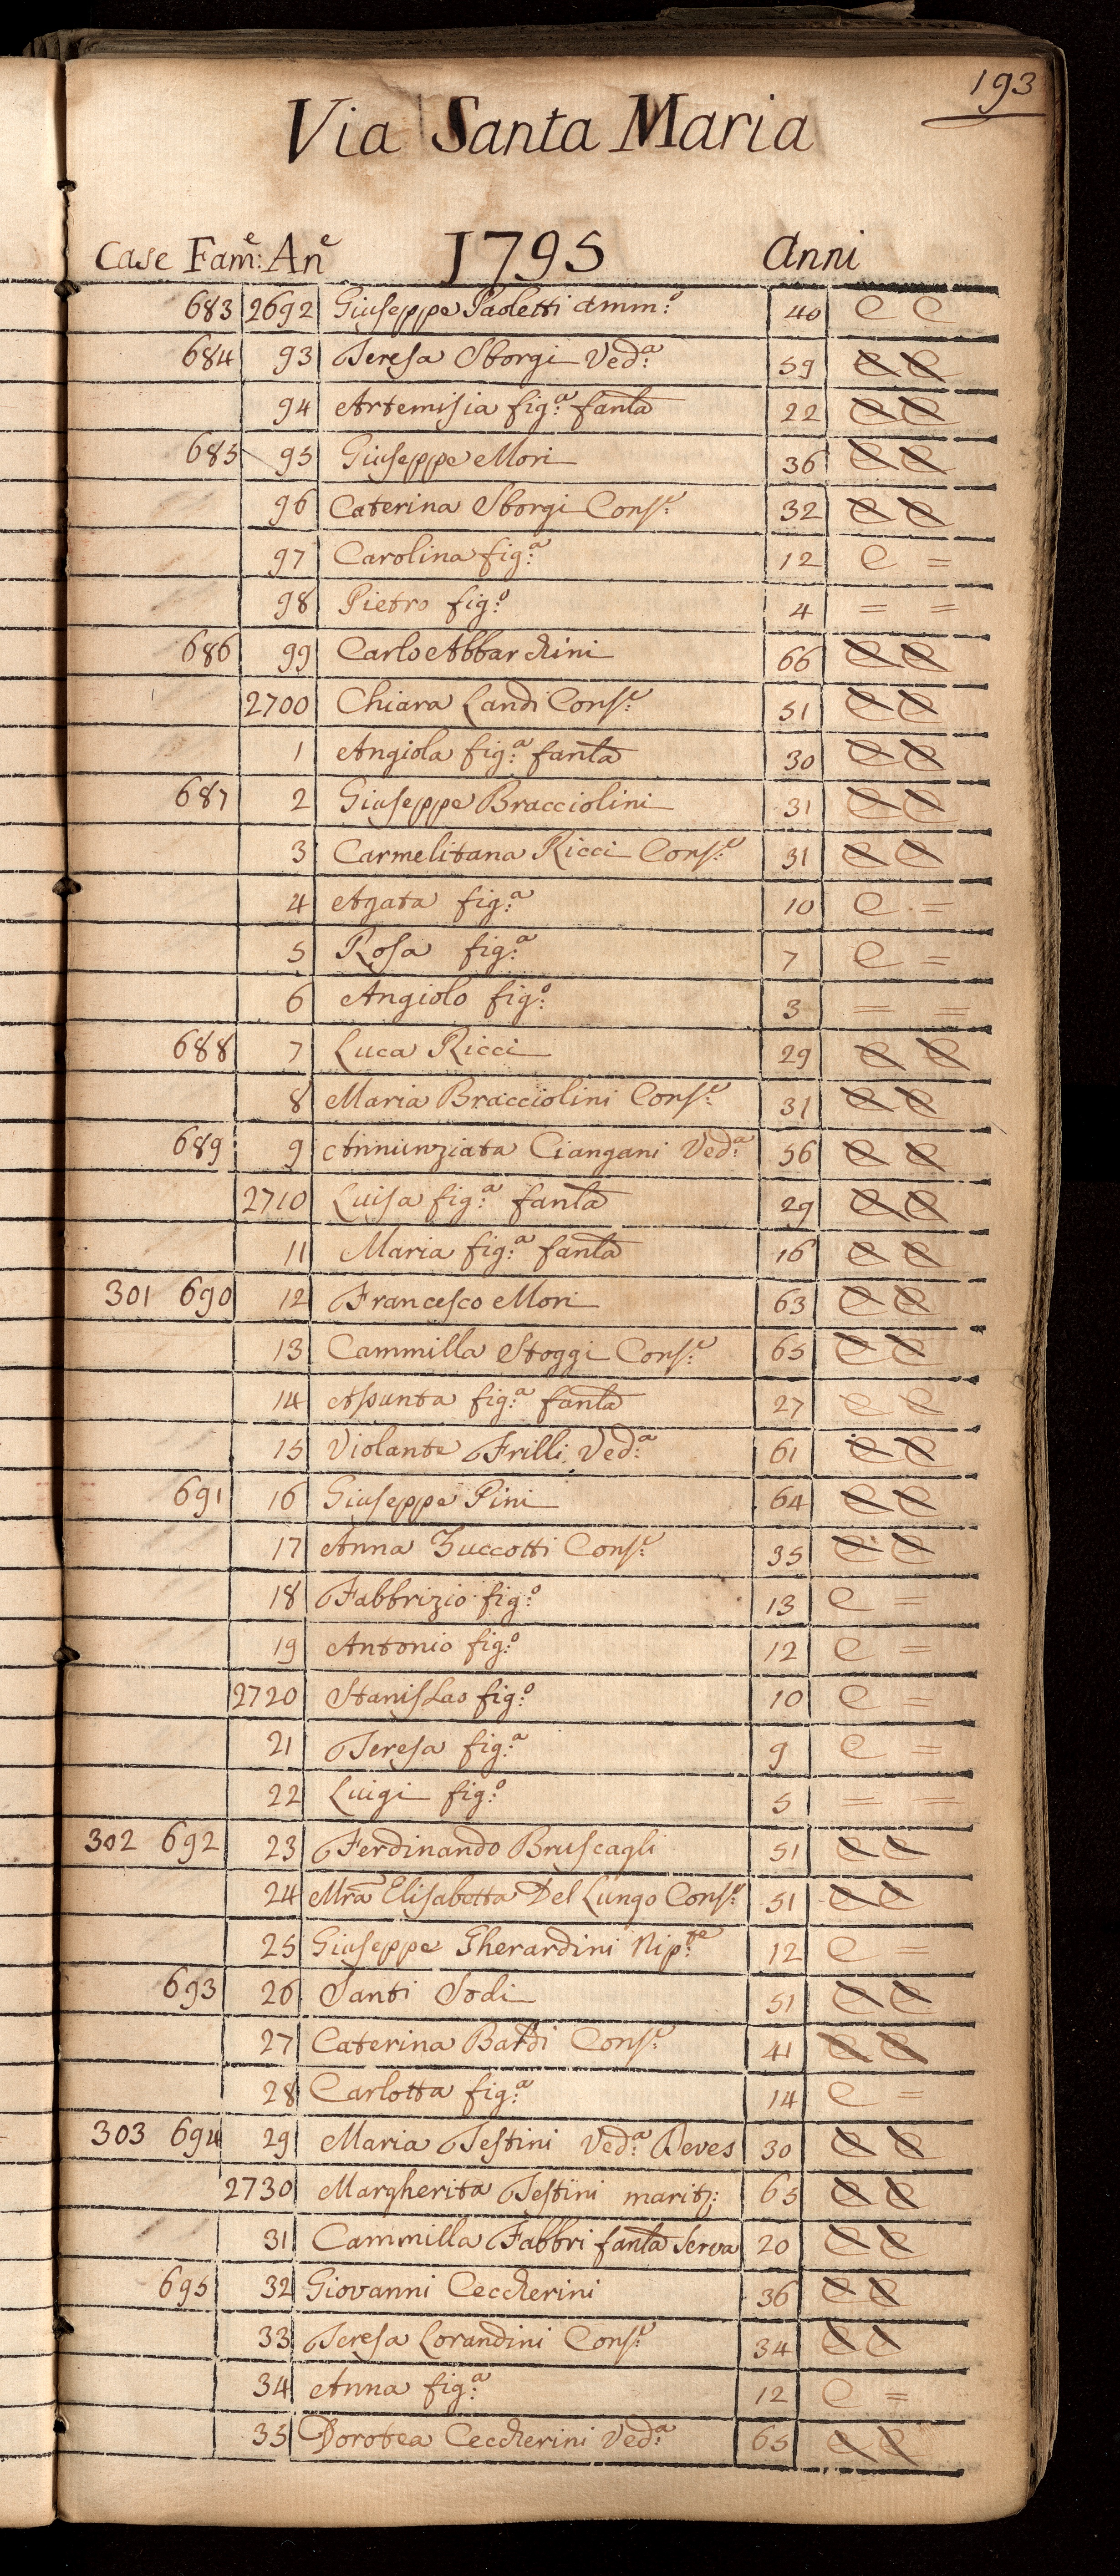 193
Via Santa Maria
Case Fam:e An:e 1795 Anni
683 2692 Giuseppe Paoletti Amm:o 40 C C
684 93 Teresa Sborgi Ved:a 59 C C
94 Artemisia fig:a fanla 22 C C
685 95 Giuseppe Mori 36 C C
96 Caterina Sborgi Cons:e 32 C C
97 Carolina fig:a 12 C =
98 Pietro fig:o 4 = =
686 99 Carlo Abbarchini 66 C C
2700 Chiara Landi Cons:e 51 C C
1 Angiola fig:a fanla 30 C C
687 2 Giuseppe Bracciolini 31 C C
3 Carmelitana Ricci Cons:e 31 C C
4 Agata fig:a 10 C =
5 Rosa fig:a 7 C =
6 Angiolo fig:o 3 = =
688 7 Luca Ricci 29 C C
8 Maria Bracciolini Cons:e 31 C C
689 9 Annunziata Ciangani Ved:a 56 C C
2710 Luisa fig:a fanla 29 C C
11 Maria fig:a fanla 16 C C
301 690 12 Francesco Mori 63 C C
13 Cammilla Stoggi Cons:e 65 C C
14 Assunta fig:a fanla 27 C C
15 Violante Frilli Ved:a 61 C C
691 16 Giuseppe Pini 64 C C
17 Anna Zuccotti Cons:e 35 C C
18 Fabbrizio fig:o 13 C =
19 Antonio fig:o 12 C =
2720 Stanislao fig:o 10 C =
21 Teresa fig:a 9 C =
22 Luigi fig:o 5 = =
302 692 23 Ferdinando Bruscagli 51 C C
24 Mra Elisabetta Del Lungo Cons:e 51 C C
25 Giuseppe Gherardini Nip:te 12 C =
693 26 Santi Sodi 51 C C
27 Caterina Bardi Cons:e 41 C C
28 Carlotta fig:a 14 C =
303 694 29 Maria Testini Ved:a Neves 30 C C
2730 Margherita Testini marit: 65 C C
31 Cammilla Fabbri fanla Serva 20 C C
695 32 Giovanni Ceccherini 36 C C
33 Teresa Lorandini Cons:e 34 C C
34 Anna fig:a 12 C =
35 Dorotea Ceccherini Ved:a 65 C C